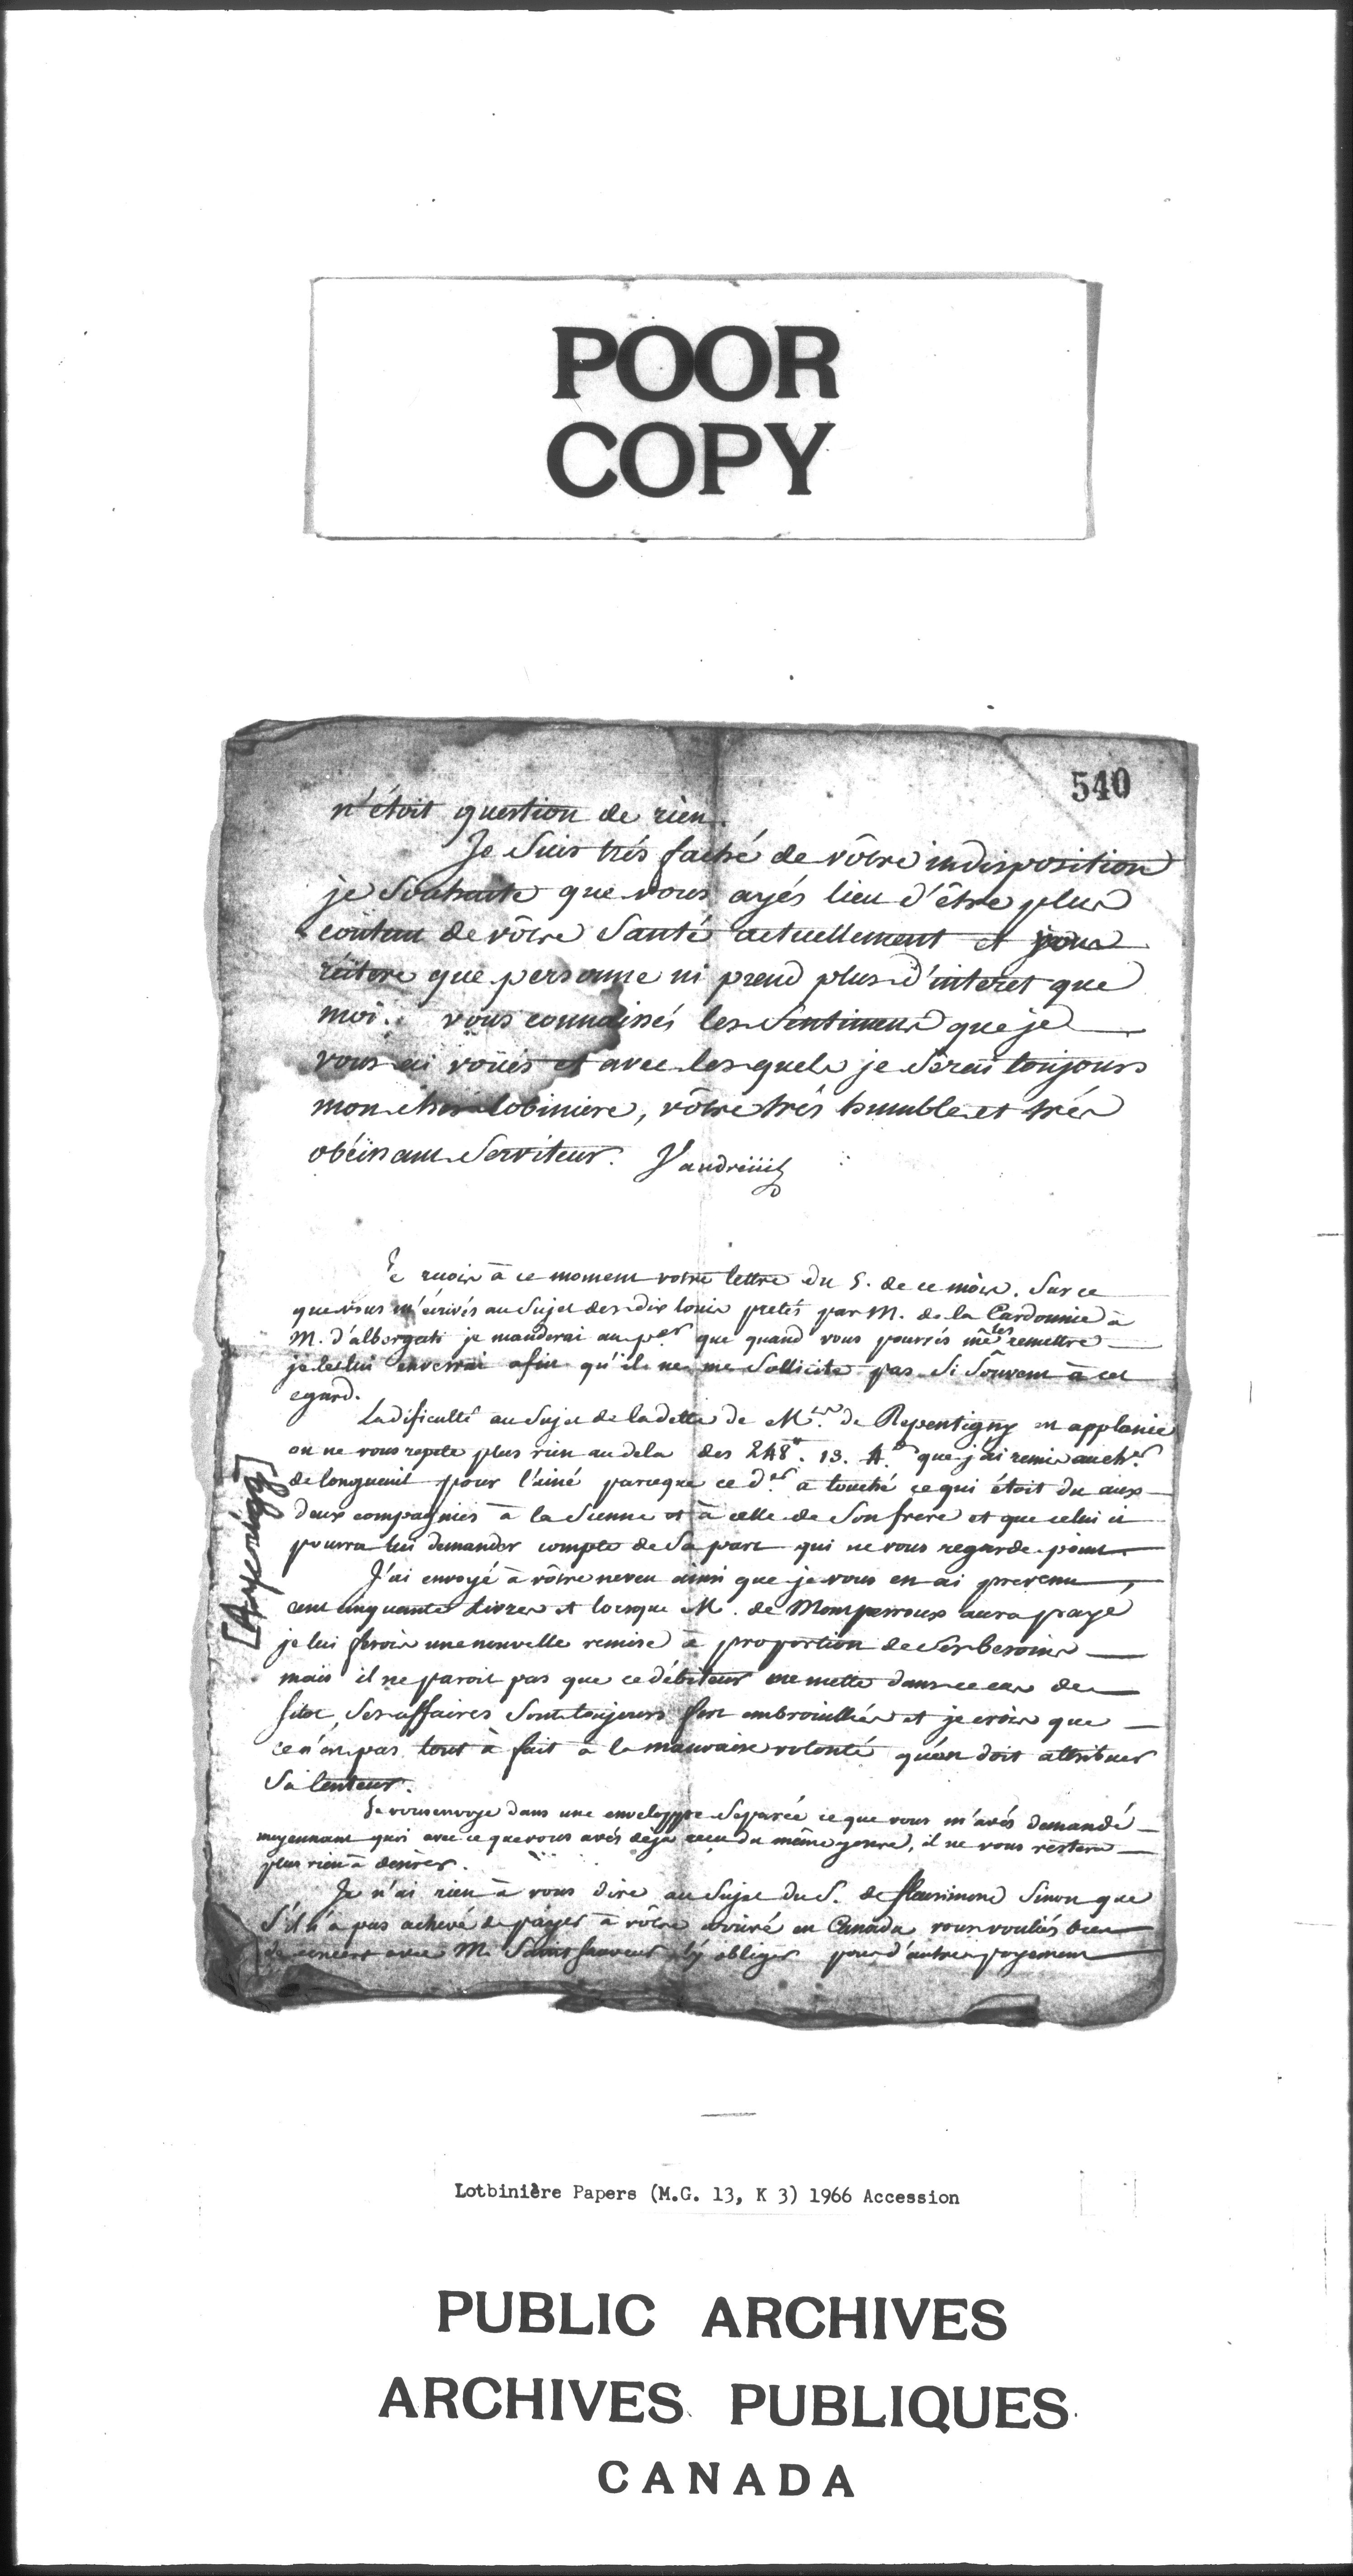 POOR
COPY
540
n'étoit question de rien.
Je Suis trés faché de vôtre indisposition
je Souhaite que vous ayés lieu d'être plus
content de vôtre Santé actuellement et vous
réitere que personne ni prend plus d'interet que
moi. vous connaissés les Sentimens que je
vous ai voüés et avec lesquels je Serai toujours
mon cher lobiniere, vôtre trés humble et trés
obéissant Serviteur. Vaudreüil
Je reçois à ce moment votre lettre du 5. de ce mois. Sur ce
que vous m'écrivés au Sujet des dix louis pretés par M. de la Cardonnie à
M. d'albergati je manderai au per que quand vous pourrés me les remettre
je les lui enverrai afin qu'il ne me Sollicite pas Si Souvent à cet
egard.
La dificulté au Sujet de la dette de Mrs. de Repentigny est applanie
on ne vous repete plus rien au dela des 248#. 13. 4. que j'ai remis au cher.
de longueuil pour l'ainé parceque ce der a touché ce qui étoit du aux
deux compagnies à la Sienne et à celle de Son frere et que celui ci
pourra lui demander compte de Sa part qui ne vous regarde point.
J'ai envoyé à vôtre neveu ainsi que je vous en ai prevenu,
cent cinquante Livres et lorsque M. de Momperroux aura payé
je lui ferois une nouvelle remise à proportion de Ses besoins
mais il ne paroit pas que ce débiteur me mette dans ce cas de
Sitot, Ses affaires Sont toujours fort embrouillées et je crois que
ce n'est pas tout à fait à la mauvaise volonté qu'on doit attribuer
Sa lenteur.
Je vous envoye dans une enveloppe Séparée ce que vous m'avés demandé
moyennant quoi avec ce que vous avés déja recu du même genre, il ne vous restera
plus rien à desirer.
Je n'ai rien à vous dire au Sujet du S. de fleurimond Sinon que
S'il n'a pas achevé de payer à vôtre arrivé en Canada vous vouliés bien
de concert avec M. Saint Sauveur l'y obliger pour d'autres payement
Lotbinière Papers (M.G. 13, K 3) 1966 Accession
PUBLIC ARCHIVES
ARCHIVES PUBLIQUES
CANADA